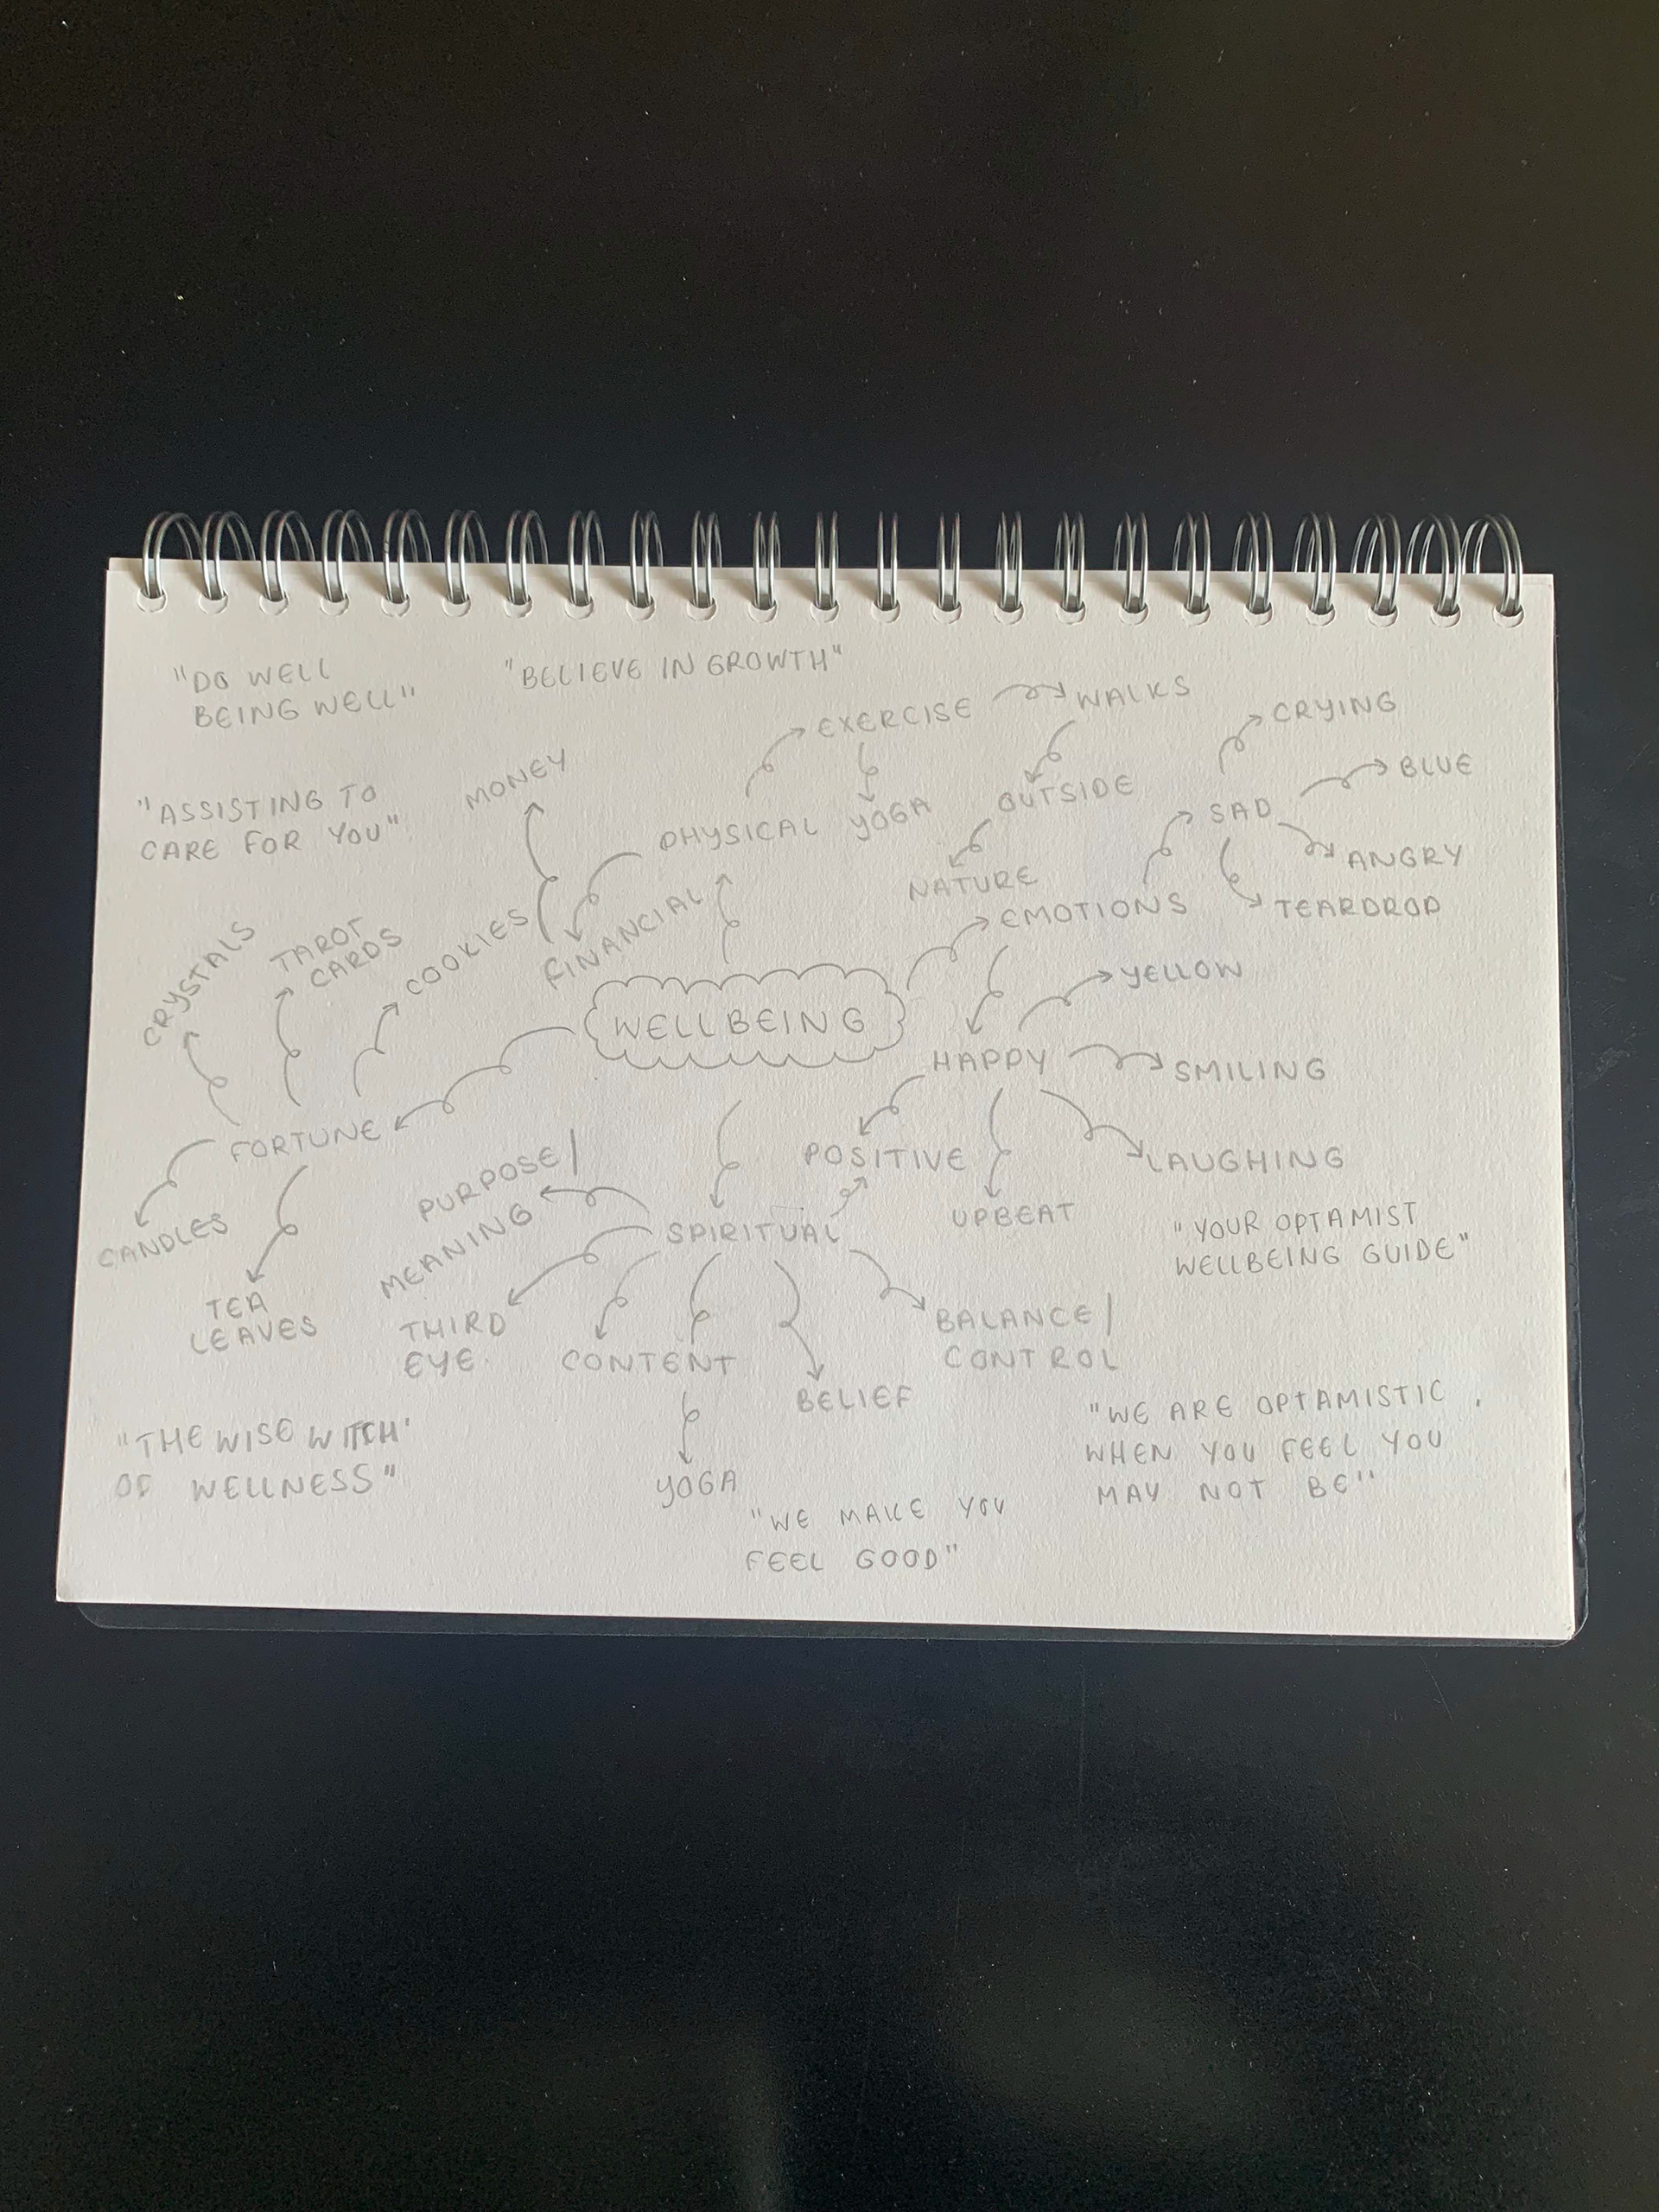 "DO WELL
BEING WELL"
"BELIEVE IN GROWTH"
"ASSISTING TO
CARE FOR YOU"
MONEY
EXERCISE
WALKS
CRYING
BLUE
PHYSICAL
YOGA
OUTSIDE
SAD
ANGRY
NATURE
TEARDROP
EMOTIONS
FINANCIAL
CRYSTALS
TAROT
CARDS
COOKIES
WELLBEING
YELLOW
HAPPY
SMILING
FORTUNE
POSITIVE
LAUGHING
PURPOSE/
MEANING
SPIRITUAL
UPBEAT
CANDLES
TEA
LEAVES
THIRD
EYE
CONTENT
BELIEF
BALANCE/
CONTROL
"YOUR OPTAMIST
WELLBEING GUIDE"
"THE WISE WITCH
OF WELLNESS"
YOGA
"WE MAKE YOU
FEEL GOOD"
"WE ARE OPTAMISTIC,
WHEN YOU FEEL YOU
MAY NOT BE"